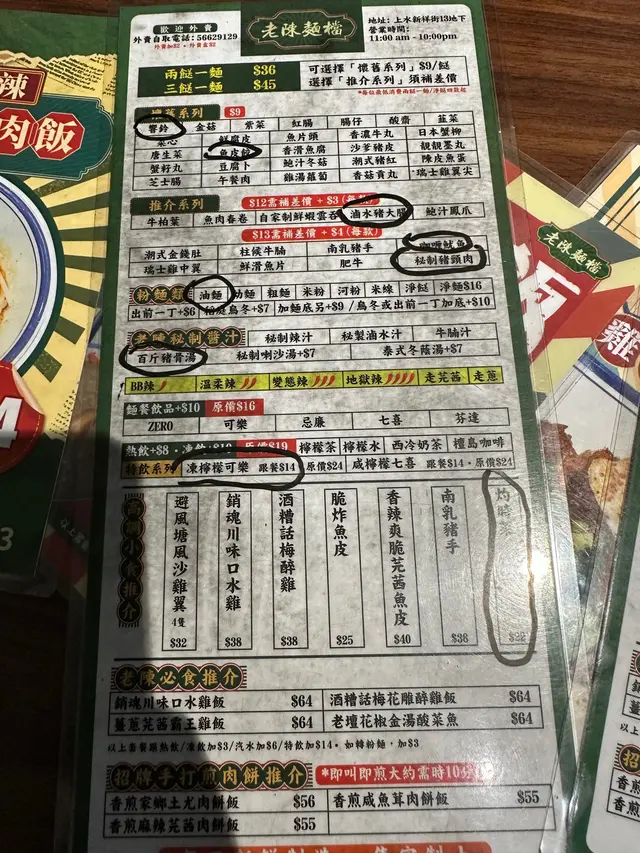 歡迎外賣
外賣自取電話:56629129
外賣加$2・外賣盒$2
老陳麵檔
地址: 上水新祥街13地下
營業時間:
11:00 am - 10:00pm
兩餸一麵 $36
三餸一麵 $45
可選擇「懷舊系列」$9/餸
選擇「推介系列」須補差價
*每位最低消費兩餸一麵/淨餸四款起
懷舊系列 $9
響鈴 金菇 紫菜 紅腸 腸仔 酸齋 韮菜
菜心 鮮腐皮 魚片頭 香濃牛丸 日本蟹柳
唐生菜 魚皮餃 香滑魚腐 沙爹豬皮 靚靚墨丸
蟹籽丸 豆腐卜 鮑汁冬菇 潮式豬紅 陳皮魚蛋
芝士腸 午餐肉 雞湯蘿蔔 香菇貢丸 瑞士雞翼尖
推介系列 $12需補差價 + $3 (每款)
牛柏葉 魚肉春卷 自家制鮮蝦雲吞 滷水豬大腸 鮑汁鳳爪
$13需補差價 + $4 (每款)
潮式金錢肚 柱候牛腩 南乳豬手 咖喱魷魚
瑞士雞中翼 鮮滑魚片 肥牛 秘制豬頭肉
粉麵類 油麵 幼麵 粗麵 米粉 河粉 米線 淨餸 淨麵$16
出前一丁+$6 稻庭烏冬+$7 加麵底另+$9 / 烏冬或出前一丁加底+$10
老陳秘制醬汁 秘制辣汁 秘製滷水汁 牛腩汁
百斤豬骨湯 秘制喇沙湯+$7 泰式冬蔭湯+$7
BB辣 溫柔辣 變態辣 地獄辣 走芫茜 走蔥
麵餐飲品+$10 原價$16
ZERO 可樂 忌廉 七喜 芬達
熱飲+$8・凍飲+$10 原價$19 檸檬茶 檸檬水 西冷奶茶 檀島咖啡
特飲系列 凍檸檬可樂 跟餐$14 原價$24 咸檸檬七喜 跟餐$14・原價$24
避風塘風沙雞翼 4隻 $32
銷魂川味口水雞 $38
酒糟話梅醉雞 $38
脆炸魚皮 $25
香辣爽脆芫茜魚皮 $40
南乳豬手 $36
灼時
老陳必食推介
銷魂川味口水雞飯 $64 酒糟話梅花雕醉雞飯 $64
薑蔥芫茜霸王雞飯 $64 老壇花椒金湯酸菜魚 $64
以上套餐跟熱飲/凍飲加$3/汽水加$6/特飲加$14・如轉粉麵，加$3
招牌手打煎肉餅推介 *即叫即煎大約需時10分
香煎家鄉土尤肉餅飯 $56 香煎咸魚茸肉餅飯 $55
香煎麻辣芫茜肉餅飯 $55
辣
肉飯
4
3
老陳麵檔
飯
雞